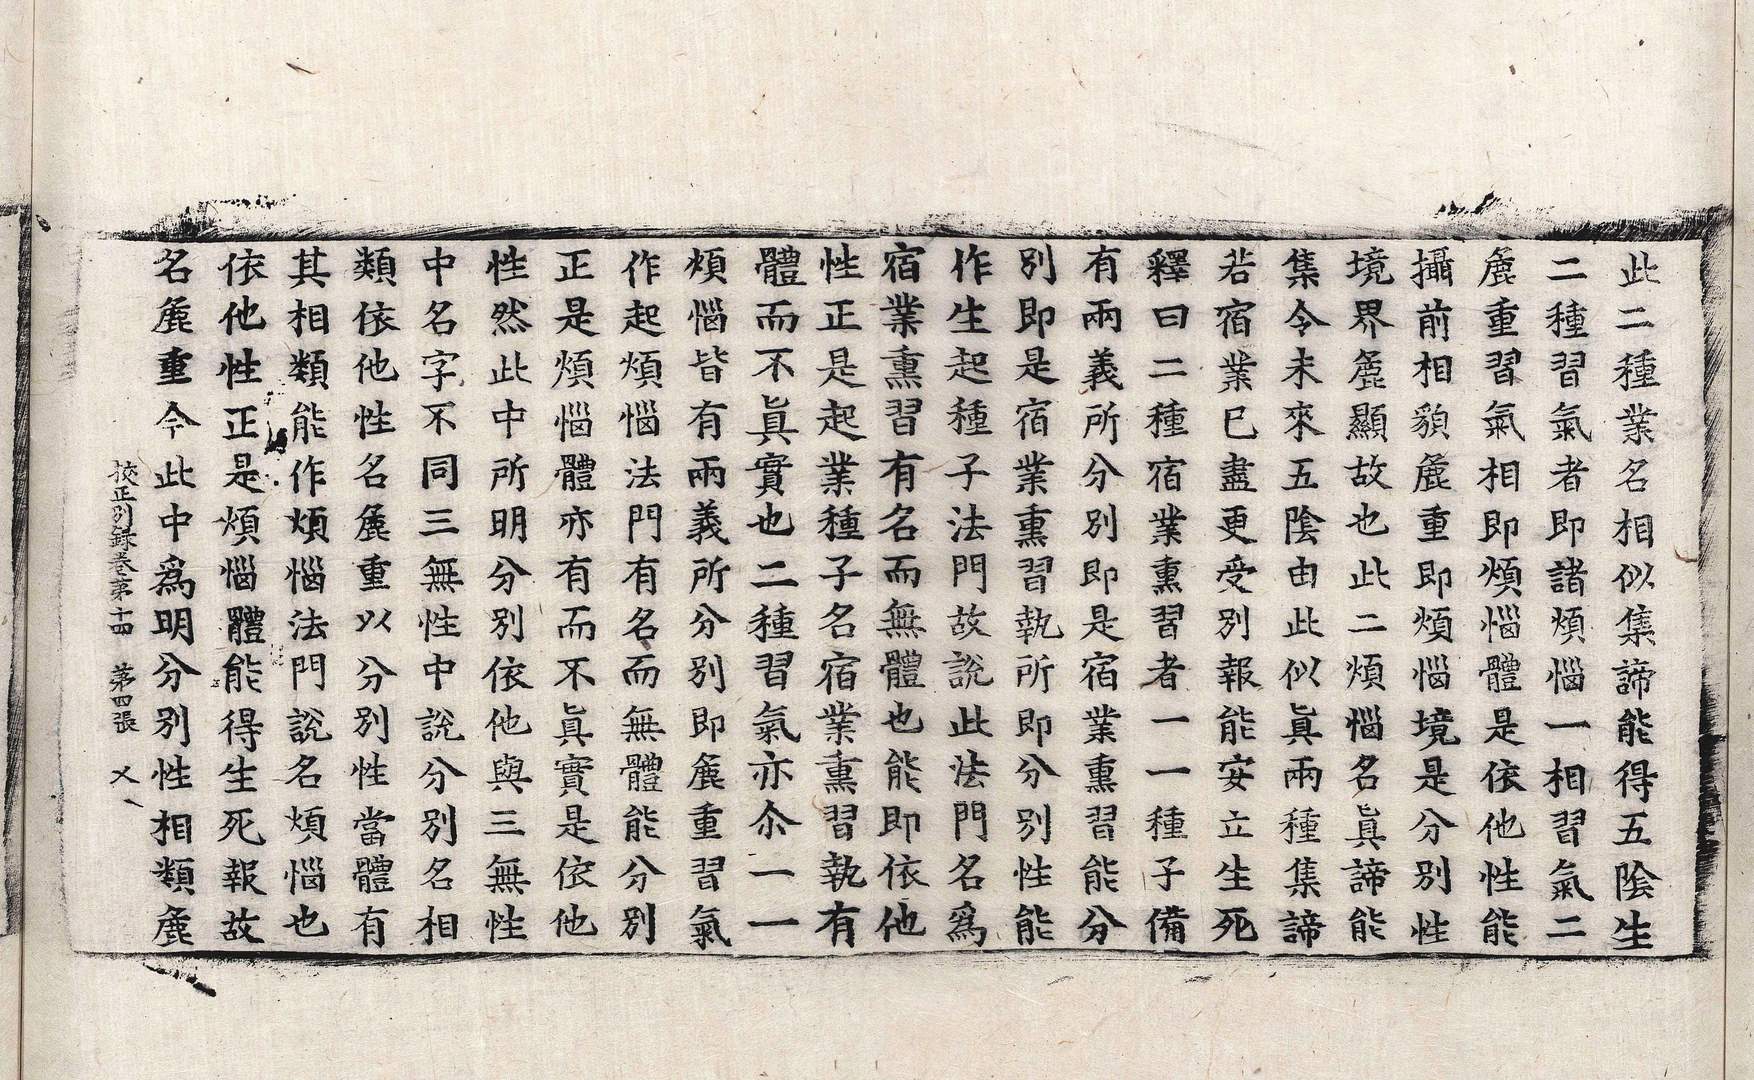 此二種業名相似集諦能得五陰生
二種習氣者即諸煩惱一相習氣二
麁重習氣相即煩惱體是依他性能
攝前相䫉麁重即煩惱境是分別性
境界麁顯故也此二煩惱名眞諦能
集令未來五陰由此似眞兩種集諦
若宿業已盡更受別報能安立生死
釋曰二種宿業熏習者一一種子備
有兩義所分別即是宿業熏習能分
別即是宿業熏習執所即分別性能
作生起種子法門故說此法門名爲
宿業熏習有名而無體也能即依他
性正是起業種子名宿業熏習執有
體而不眞實也二種習氣亦尒一一
煩惱皆有兩義所分別即麁重習氣
作起煩惱法門有名而無體能分別
正是煩惱體亦有而不眞實是依他
性然此中所明分別依他與三無性
中名字不同三無性中說分別名相
類依他性名麁重以分別性當體有
其相類能作煩惱法門說名煩惱也
依他性正是煩惱體能得生死報故
名麁重今此中爲明分別性相類麁
挍正別録卷第十四　第四張　乂